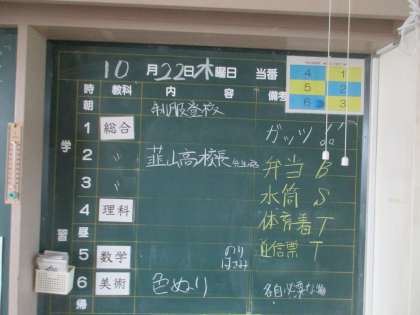 10月22日木曜日 当番 4 1
5 2
6 3
時 教科 内容 備考
朝 制服登校
1 総合 ガッツ
2 〃 韮山高校長 弁当 B
3 〃 水筒 S
4 理科 体育着 T
昼 通信票 T
5 数学 のり
はさみ
6 美術 色ぬり 各自必要な物
帰
学習